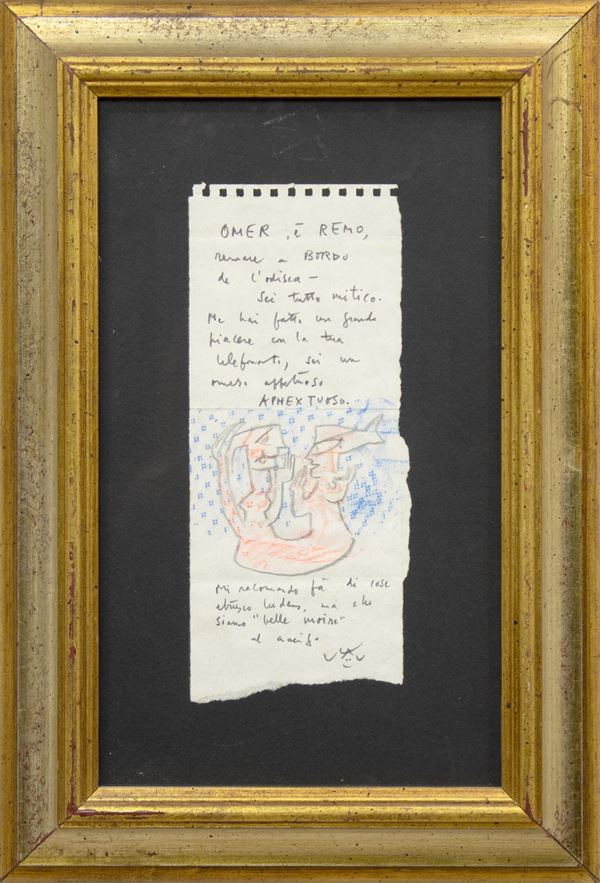 OMER . è REMO,
remare a BORDO
de l'odisea –
sei tutto mitico.
Me hai fatto un grande
piacere con la tua
telefonata, sei un
omero affettuoso
APHEXTUOSO.
Mi racomando fà di cose
etrusco ludens, ma che
siamo "belle moire"